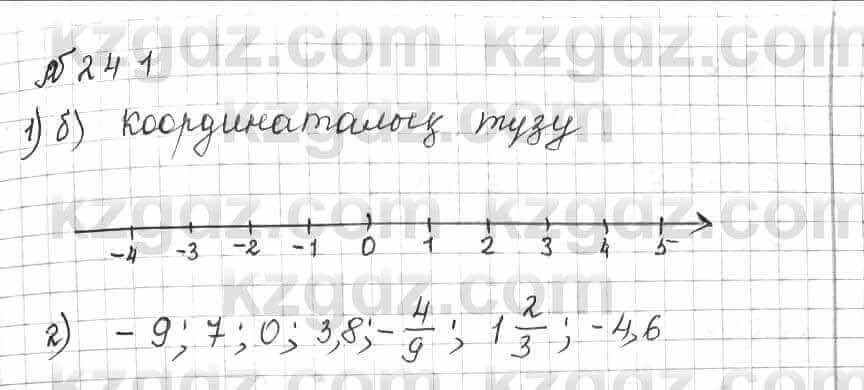 kzgdz.com kzgdz.com
№ 241
1) б) координаталық түзу
kzgdz.com
kzgdz.com kzgdz.com
-4 -3 -2 -1 0 1 2 3 4 5
kzgdz.com
2) - 9; 7; 0; 3,8; - 4/9; 1 2/3; -4,6
kzgdz.com kzgdz.com